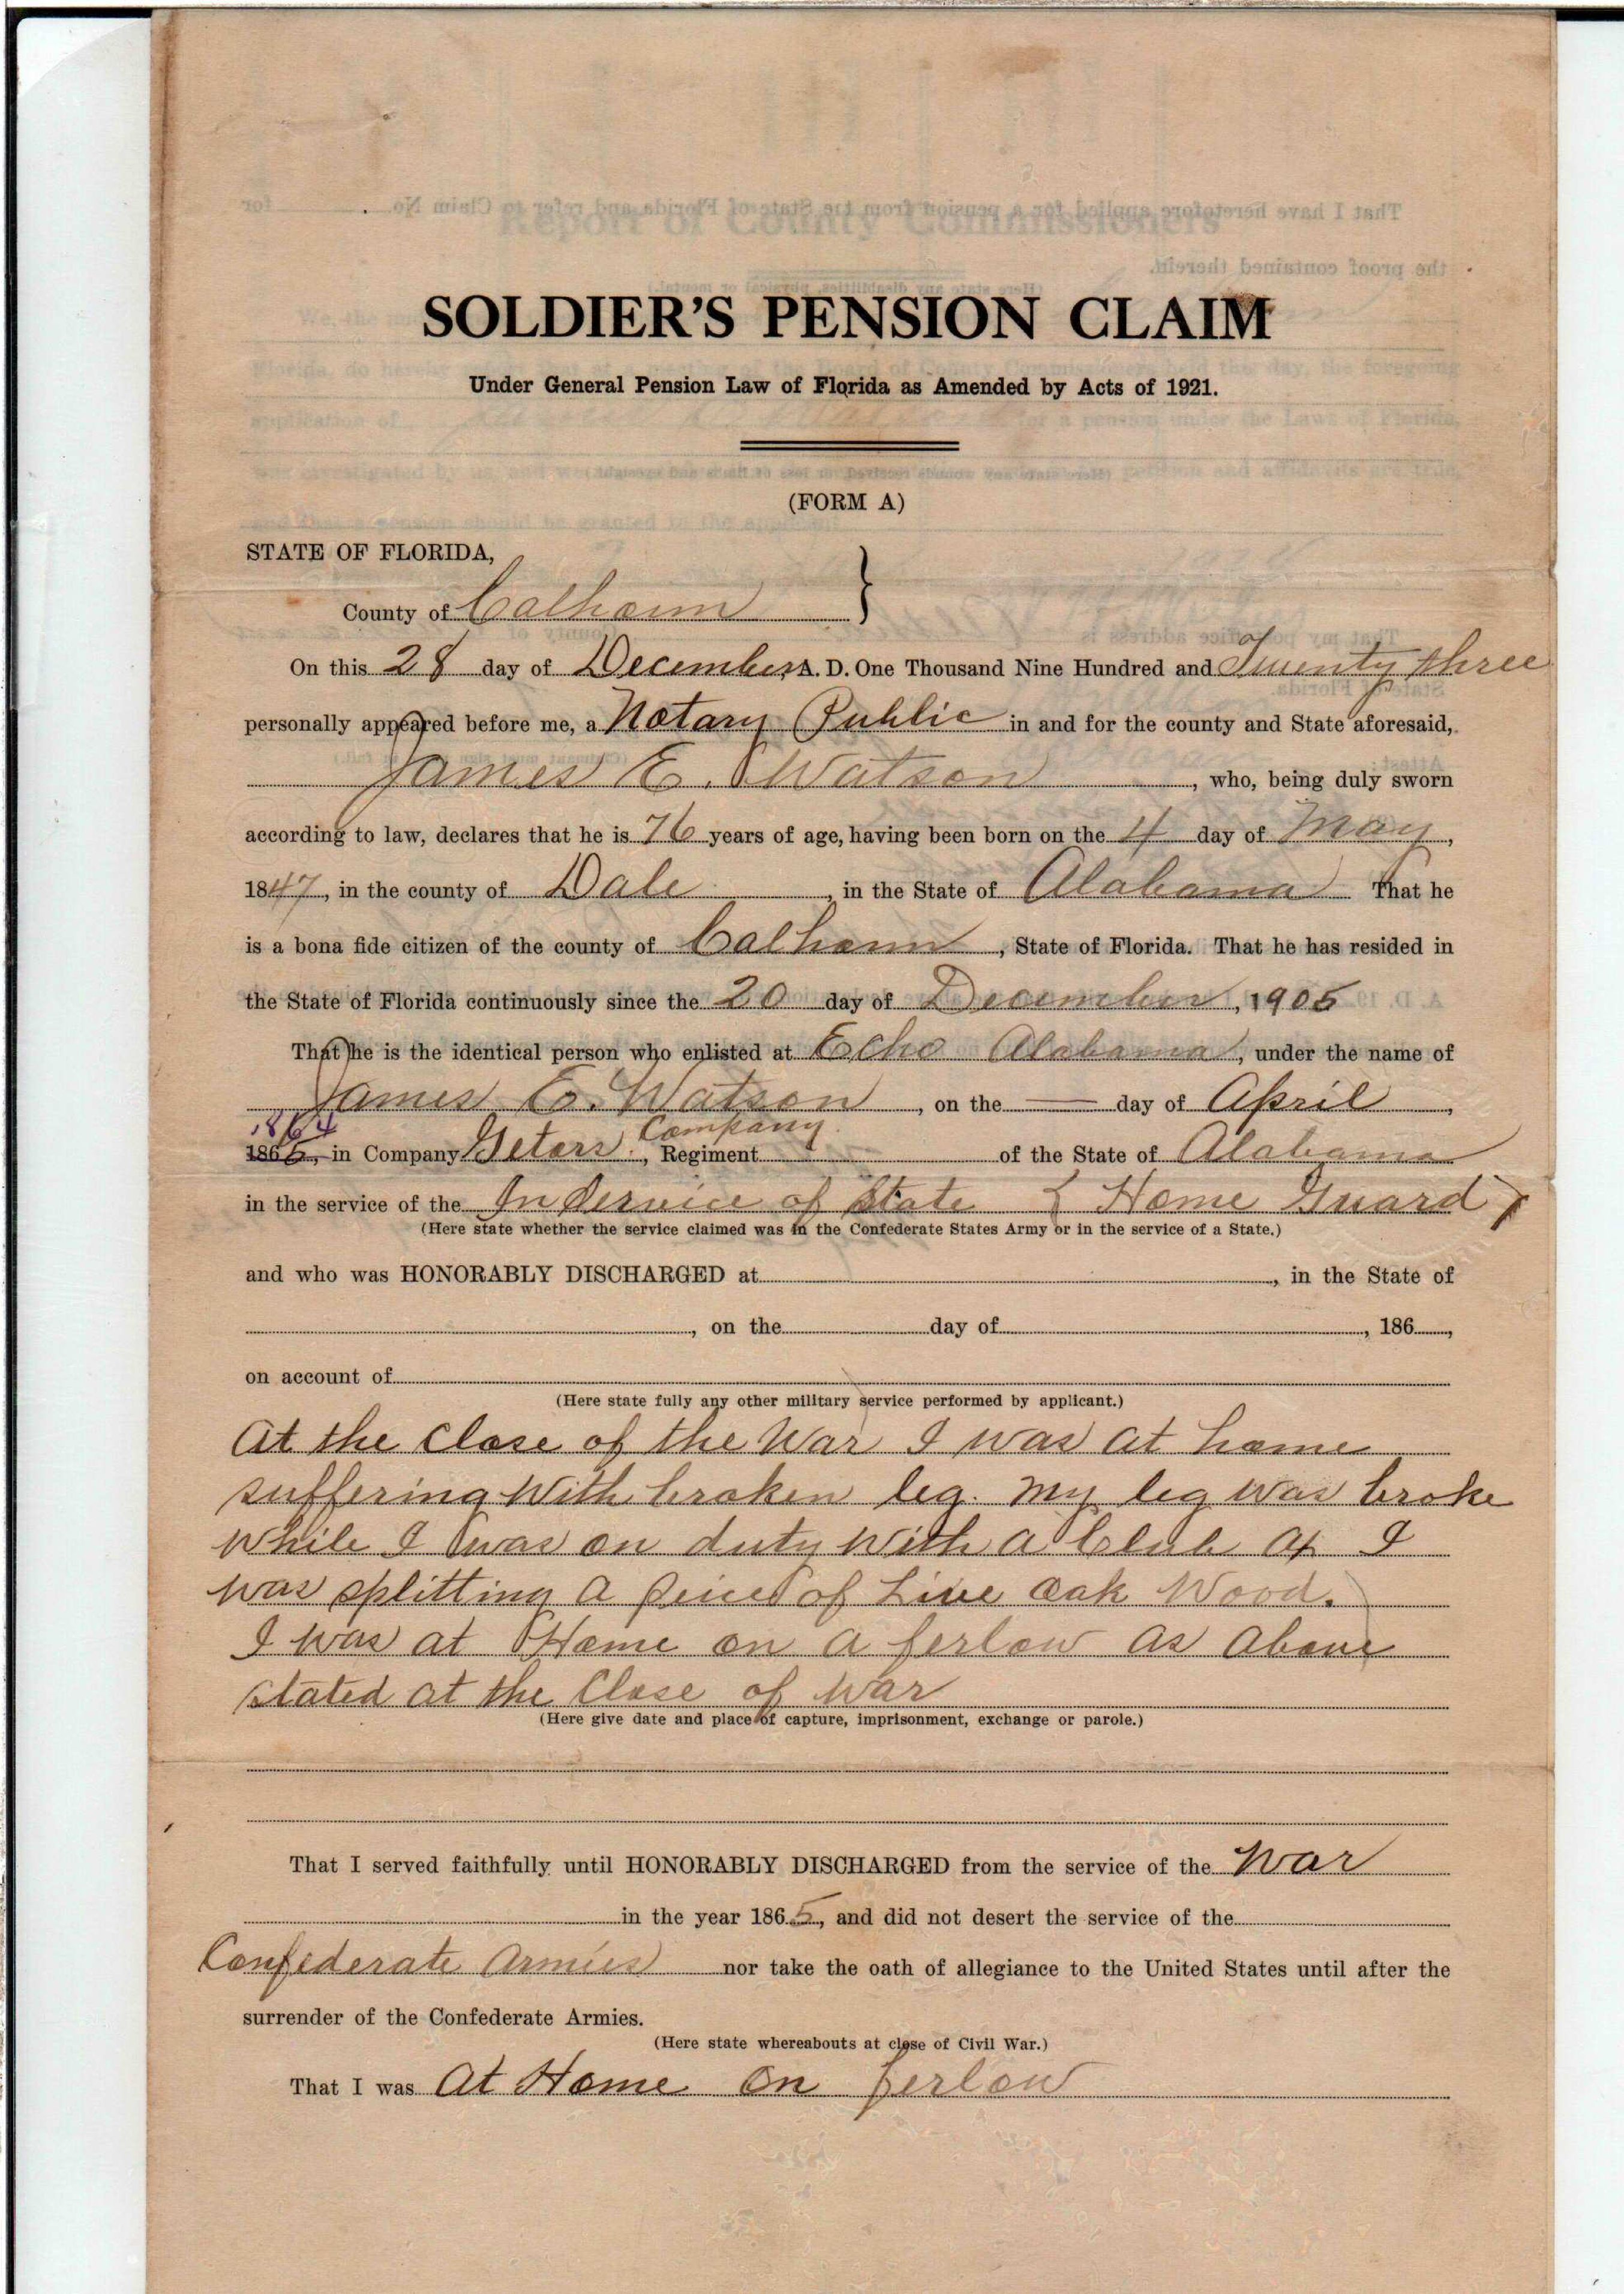 SOLDIER'S PENSION CLAIM
Under General Pension Law of Florida as Amended by Acts of 1921.
(FORM A)
STATE OF FLORIDA,
County of Calhoun }
On this 28 day of December, A. D. One Thousand Nine Hundred and Twenty three
personally appeared before me, a Notary Public in and for the county and State aforesaid,
James E. Watson, who, being duly sworn
according to law, declares that he is 76 years of age, having been born on the 4 day of May,
1847, in the county of Dale, in the State of Alabama That he
is a bona fide citizen of the county of Calhoun, State of Florida. That he has resided in
the State of Florida continuously since the 20 day of December, 1905
That he is the identical person who enlisted at Echo Alabama, under the name of
James E. Watson, on the — day of April,
1864 Company
186, in Company Geters, Regiment of the State of Alabama
in the service of the In Service of State { Home Guard }
(Here state whether the service claimed was in the Confederate States Army or in the service of a State.)
and who was HONORABLY DISCHARGED at, in the State of
, on the day of, 186,
on account of
(Here state fully any other military service performed by applicant.)
At the Close of the War I was at home
suffering With broken leg. My leg was broke
while I was on duty with a Club as I
was splitting a peice of Live Oak Wood.
I was at Home on a ferlow as above
stated at the Close of War
(Here give date and place of capture, imprisonment, exchange or parole.)
That I served faithfully until HONORABLY DISCHARGED from the service of the War
in the year 1865, and did not desert the service of the
Confederate Armies nor take the oath of allegiance to the United States until after the
surrender of the Confederate Armies.
(Here state whereabouts at close of Civil War.)
That I was At Home On ferlow